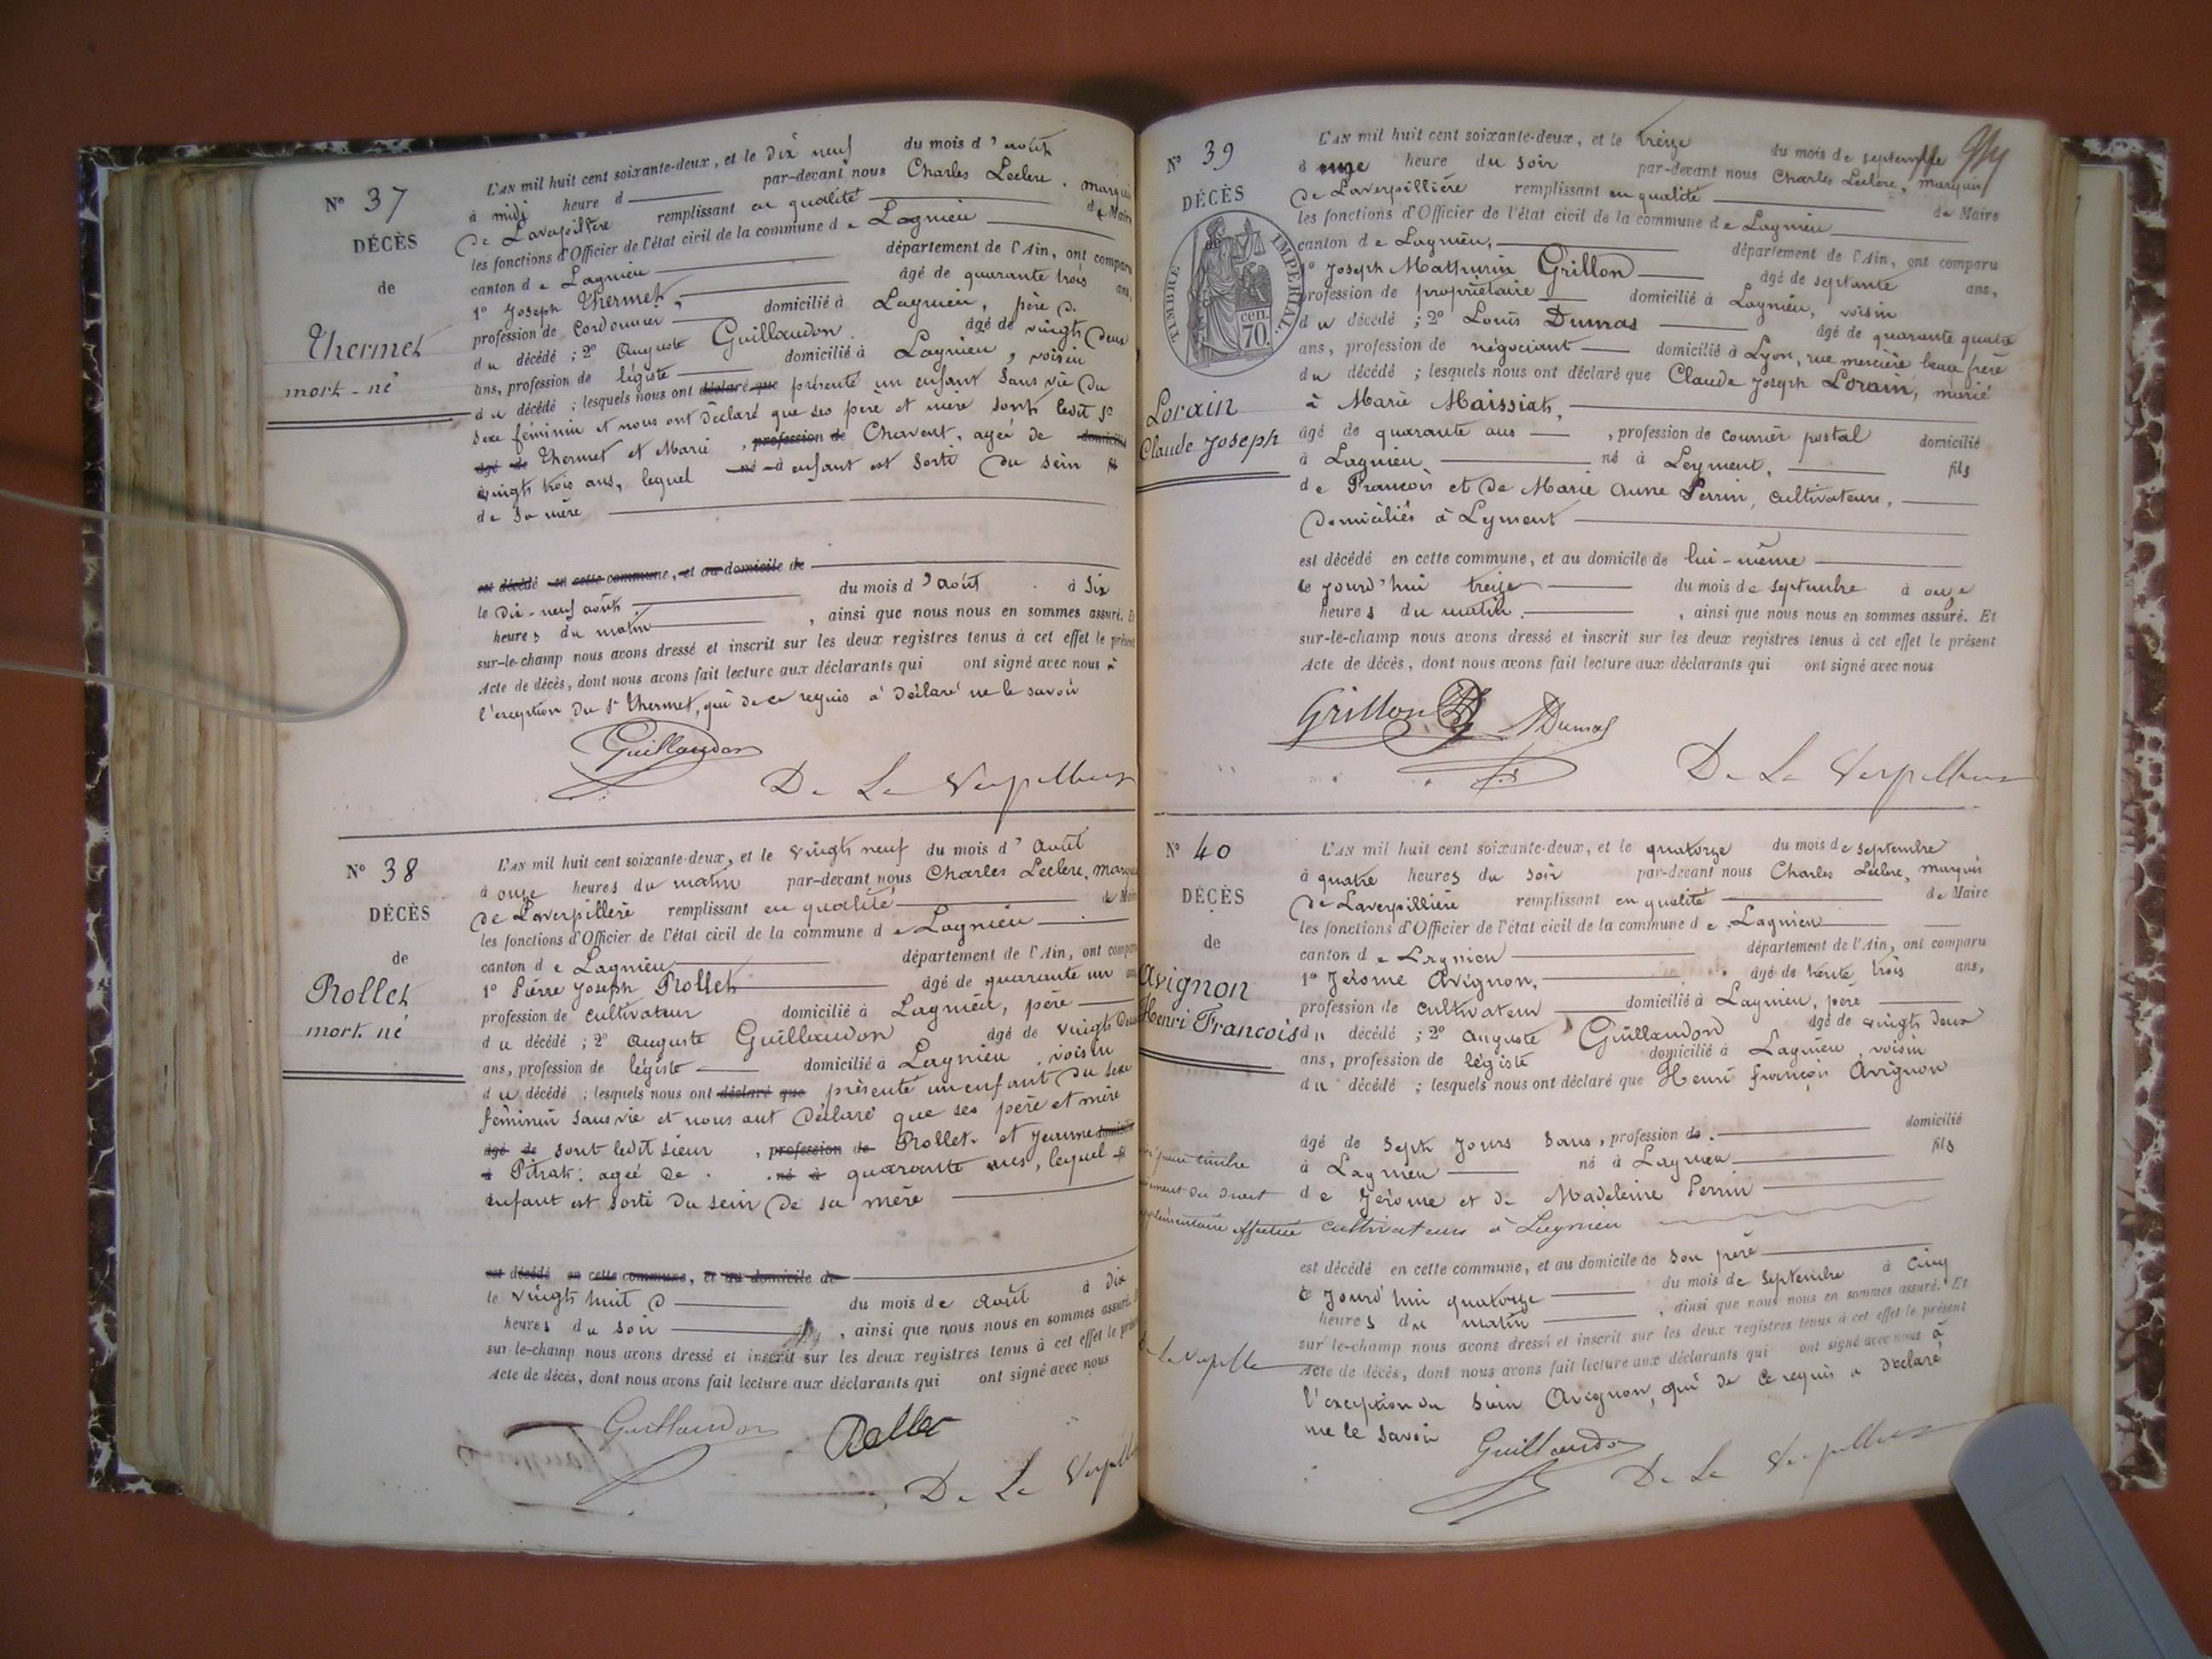 N° 37
DÉCÈS
de
Thermet
mort-né
L'AN mil huit cent soixante-deux, et le dix neuf du mois d'août
à midi heure d par-devant nous Charles Leclerc, marquis
De Laverpillère remplissant en qualité de Maire
les fonctions d'Officier de l'état civil de la commune de Lagnieu
canton de Lagnieu département de l'Ain, ont comparu
1° Joseph Thermet, âgé de quarante trois ans,
profession de cordonnier domicilié à Lagnieu, père
du décédé ; 2° Auguste Guillaudon âgé de vingt deux
ans, profession de légiste domicilié à Lagnieu, voisin
du décédé ; lesquels nous ont déclaré que présenté un enfant sans vie du
sexe féminin et nous ont déclaré que ses père et mère sont ledit Sr
âgé de Thermet et Marie, profession de Charvet, agée de domicilié
vingt trois ans, lequel né à enfant est sorti du sein
de sa mère
est décédé en cette commune, et au domicile de
le dix-neuf août du mois d'août à six
heures du matin, ainsi que nous nous en sommes assuré. Et
sur-le-champ nous avons dressé et inscrit sur les deux registres tenus à cet effet le présent
Acte de décès, dont nous avons fait lecture aux déclarants qui ont signé avec nous à
l'exception du Sr Thermet, qui de ce requis a déclaré ne le savoir
Guillaudon
De La Verpillière
N° 38
DÉCÈS
de
Rollet
mort né
L'AN mil huit cent soixante-deux, et le vingt neuf du mois d'août
à onze heures du matin par-devant nous Charles Leclerc, marquis
de Laverpillère remplissant en qualité de Maire
les fonctions d'Officier de l'état civil de la commune de Lagnieu
canton de Lagnieu département de l'Ain, ont comparu
1° Pierre Joseph Rollet âgé de quarante un ans
profession de cultivateur domicilié à Lagnieu, père
du décédé ; 2° Auguste Guillaudon âgé de vingt deux
ans, profession de légiste domicilié à Lagnieu, voisin
du décédé ; lesquels nous ont déclaré que présenté un enfant du sexe
féminin sans vie et nous ont déclaré que ses père et mère
âgé de sont ledit sieur, profession de Rollet et Jeanne domicilié
à Pitrat: agée de né à quarante ans, lequel
enfant est sorti du sein de sa mère
est décédé en cette commune, et au domicile de
le vingt huit du mois de août à dix
heures du soir, ainsi que nous nous en sommes assuré.
sur-le-champ nous avons dressé et inscrit sur les deux registres tenus à cet effet le présent
Acte de décès, dont nous avons fait lecture aux déclarants qui ont signé avec nous
Guillaudon Rollet
De La Verpillière
N° 39
DÉCÈS
de
TIMBRE IMPÉRIAL.
70 cen.
Lorain
Claude Joseph
L'AN mil huit cent soixante-deux, et le treize du mois de septembre
à onze heure du soir par-devant nous Charles Leclerc, marquis
De Laverpillière remplissant en qualité de Maire
les fonctions d'Officier de l'état civil de la commune de Lagnieu
canton de Lagnieu, département de l'Ain, ont comparu
1° Joseph Mathurin Grillon âgé de septante ans,
profession de propriétaire domicilié à Lagnieu, voisin
du décédé ; 2° Louis Dumas âgé de quarante quatre
ans, profession de négociant domicilié à Lyon, rue mercière beau frère
du décédé ; lesquels nous ont déclaré que Claude Joseph Lorain, marié
à Marie Maissiat,
âgé de quarante ans, profession de courrier postal domicilié
à Lagnieu né à Leyment, fils
de François et de Marie Anne Perrin, cultivateurs,
domiciliés à Leyment
est décédé en cette commune, et au domicile de lui-même
ce jourd'hui treize du mois de septembre à onze
heures du matin, ainsi que nous nous en sommes assuré. Et
sur-le-champ nous avons dressé et inscrit sur les deux registres tenus à cet effet le présent
Acte de décès, dont nous avons fait lecture aux déclarants qui ont signé avec nous
Grillon Dumas
De La Verpillière
N° 40
DÉCÈS
de
Avignon
Henri François
L'AN mil huit cent soixante-deux, et le quatorze du mois de septembre
à quatre heures du soir par-devant nous Charles Leclerc, marquis
De Laverpillière remplissant en qualité de Maire
les fonctions d'Officier de l'état civil de la commune de Lagnieu
canton de Lagnieu département de l'Ain, ont comparu
1° Jérome Avignon, âgé de trente trois ans,
profession de cultivateur domicilié à Lagnieu, père
du décédé ; 2° Auguste Guillaudon âgé de vingt deux
ans, profession de légiste domicilié à Lagnieu, voisin
du décédé ; lesquels nous ont déclaré que Henri françois Avignon
âgé de sept jours sans, profession de domicilié
à Lagnieu né à Lagnieu fils
de Jérome et de Madeleine Perrin
cultivateurs à Lagnieu
pour timbre
du droit
supplémentaire effectué
est décédé en cette commune, et au domicile de son père
ce jourd'hui quatorze du mois de septembre à cinq
heures du matin, ainsi que nous nous en sommes assuré. Et
sur-le-champ nous avons dressé et inscrit sur les deux registres tenus à cet effet le présent
Acte de décès, dont nous avons fait lecture aux déclarants qui ont signé avec nous à
l'exception du Avignon, qui de ce requis a déclaré
ne le savoir
Guillaudon De La Verpillière